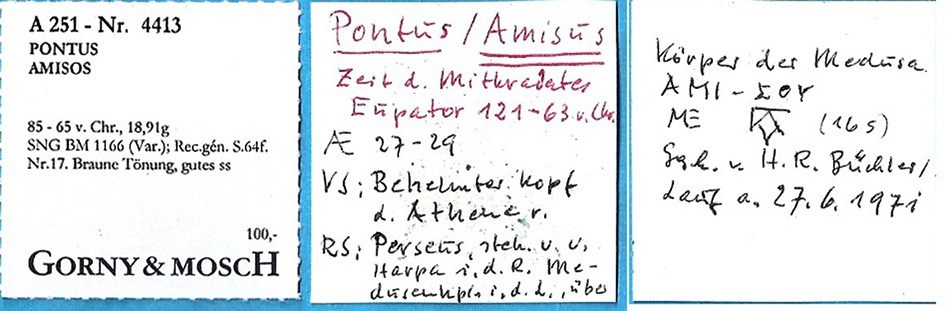 A 251 - Nr. 4413
PONTUS
AMISOS
85 - 65 v. Chr., 18,91g
SNG BM 1166 (Var.); Rec.gén. S.64f.
Nr.17. Braune Tönung, gutes ss
100,-
GORNY & MOSCH
Pontus / Amisus
Zeit d. Mithradates
Eupator 121-63 v. Chr.
Æ 27-29
VS: Behelmter Kopf
d. Athena r.
RS: Perseus, steh. v. v.
Harpa i. d. R. Me-
dusenhpt. i. d. L., über
Körper der Medusa
AMI - ΣΟΥ
ME (16 s)
v. H. R. Büchler /
Lauf a. 27.6.1971